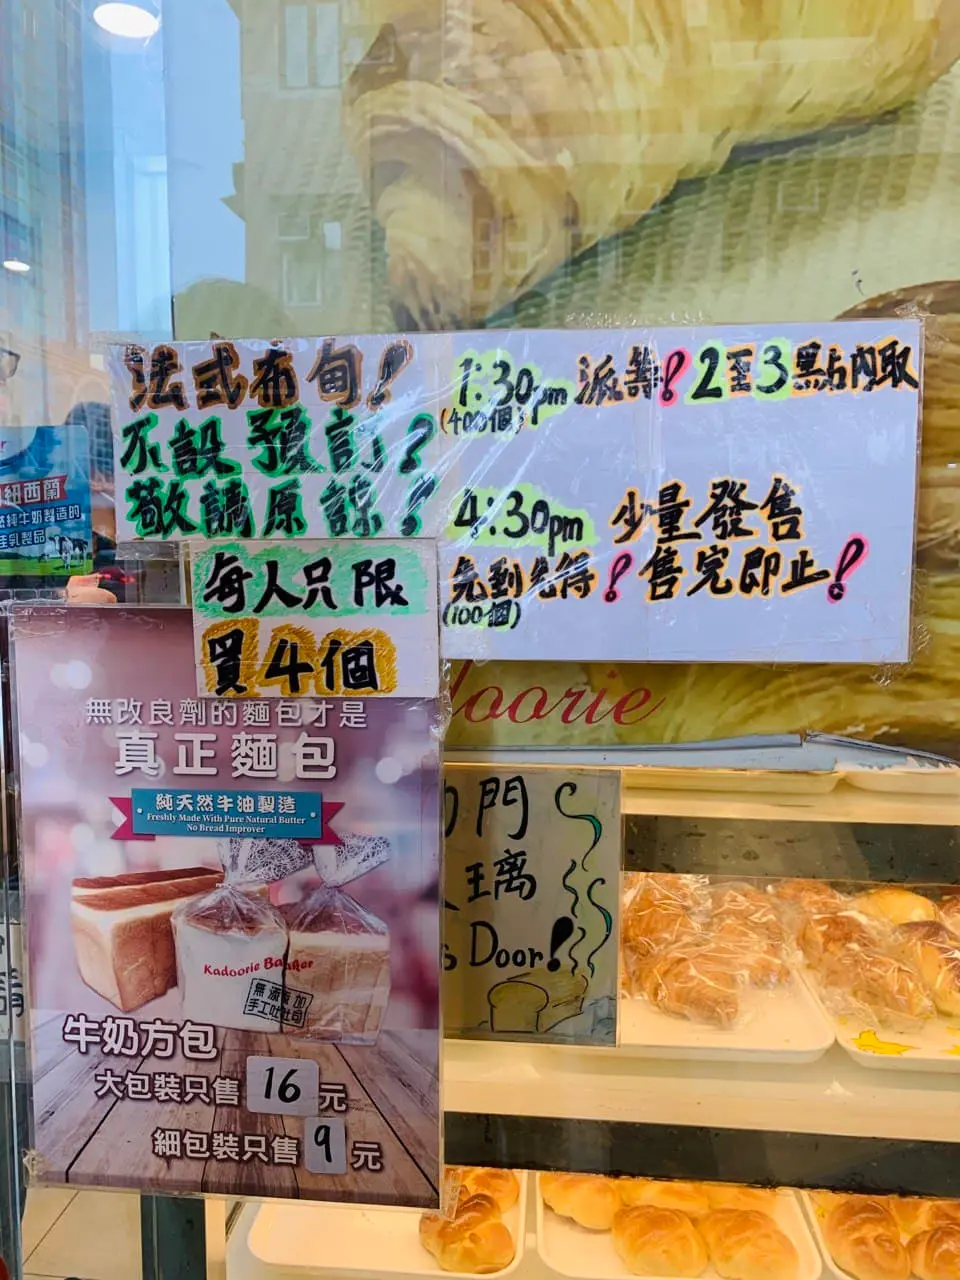 法式布甸!
不設預訂!
敬請原諒!
每人只限
買4個
1:30pm 派籌! 2至3點內取
(400個)
4:30pm 少量發售
先到先得! 售完即止!
(100個)
紐西蘭
純牛奶製造的
乳製品
doorie
無改良劑的麵包才是
真正麵包
純天然牛油製造
Freshly Made With Pure Natural Butter
No Bread Improver
Kadoorie Baaker
無添加
手工吐司
牛奶方包
大包裝只售 16 元
細包裝只售 9 元
門
璃
s Door!
請